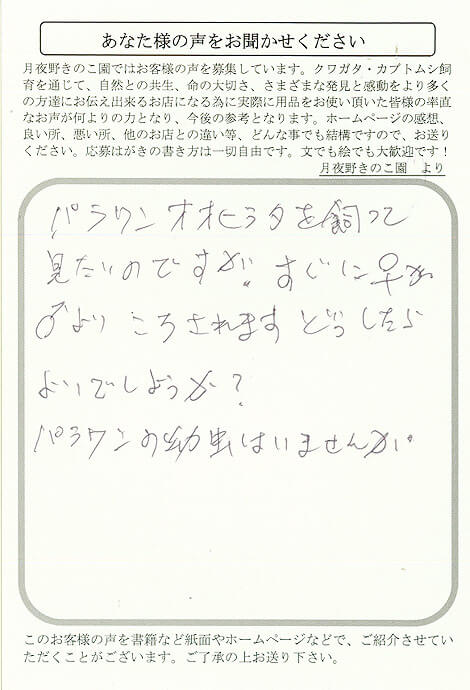 あなた様の声をお聞かせください
月夜野きのこ園ではお客様の声を募集しています。クワガタ・カブトムシ飼
育を通じて、自然との共生、命の大切さ、さまざまな発見と感動をより多く
の方達にお伝え出来るお店になる為に実際に用品をお使い頂いた皆様の率直
なお声が何よりの力となり、今後の参考となります。ホームページの感想、
良い所、悪い所、他のお店との違い等、どんな事でも結構ですので、お送り
ください。応募はがきの書き方は一切自由です。文でも絵でも大歓迎です！
月夜野きのこ園　より
パラワンオオヒラタを飼って
見たいのですが。すぐに♀が
♂より ころされます どうしたら
よいでしょうか？
パラワンの幼虫はいませんか
このお客様の声を書籍など紙面やホームページなどで、ご紹介させてい
ただくことがございます。ご了承の上お送り下さい。